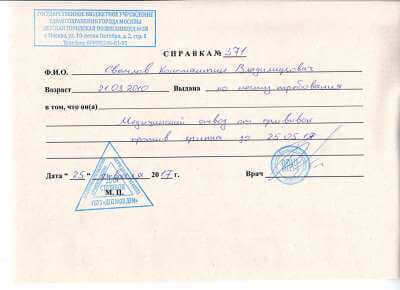 ГОСУДАРСТВЕННОЕ БЮДЖЕТНОЕ УЧРЕЖДЕНИЕ
ЗДРАВООХРАНЕНИЯ ГОРОДА МОСКВЫ
ДЕТСКАЯ ГОРОДСКАЯ ПОЛИКЛИНИКА
СПРАВКА № 371
Ф.И.О. Константин Владимирович
Возраст 21.03.2010 Выдана по месту требования
в том, что он(а)
Медицинский отвод от прививок
против гриппа до 25.05.17
Дата " 25 " 2017 г. Врач
ДЛЯ
СПРАВОК
М. П.
ВРАЧ